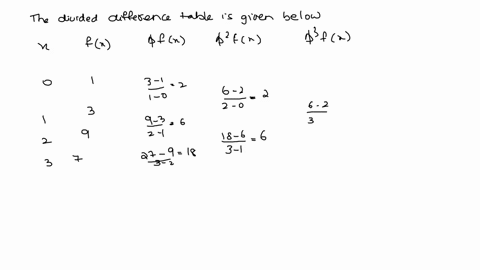 The divided difference table is given below
x f(x) ϕf(x) ϕ²f(x) ϕ³f(x)
0 1 3-1/1-0 = 2
6-2/2-0 = 2
1 3 9-3/2-1 = 6 6-2/3
2 9 18-6/3-1 = 6
3 7 27-9/3-2 = 18